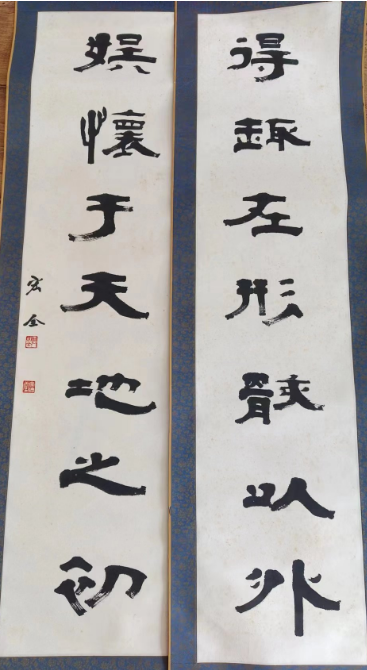 得趣在形骸以外
娛懷于天地之初
宏全